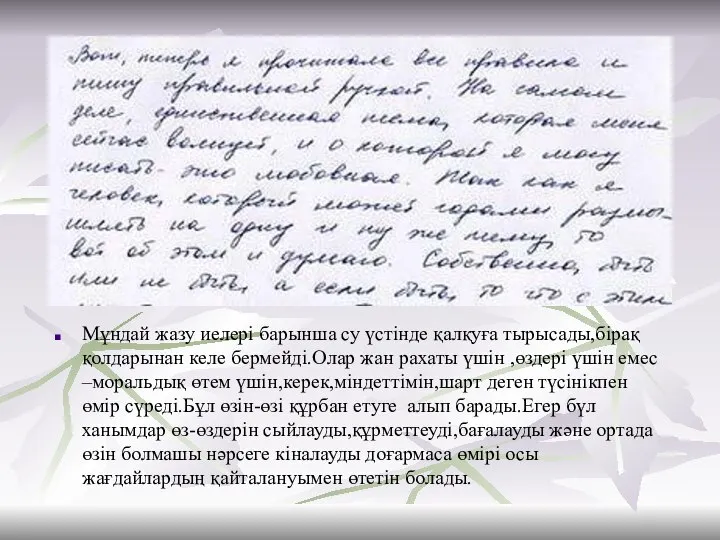 Вот, теперь я прочитала все правила и
пишу правильной ручкой. На самом
деле, единственная тема, которая меня
сейчас волнует, и о которой я могу
писать - это любовная. Так как я
человек, который может годами размы-
шлять на одну и ту же тему, то
вот об этом и думаю. Собственно, быть
или не быть, а если быть, то что с этим
▪ Мұндай жазу иелері барынша су үстінде қалқуға тырысады,бірақ
қолдарынан келе бермейді.Олар жан рахаты үшін ,өздері үшін емес
–моральдық өтем үшін,керек,міндеттімін,шарт деген түсінікпен
өмір сүреді.Бұл өзін-өзі құрбан етуге алып барады.Егер бүл
ханымдар өз-өздерін сыйлауды,құрметтеуді,бағалауды және ортада
өзін болмашы нәрсеге кіналауды доғармаса өмірі осы
жағдайлардың қайталануымен өтетін болады.